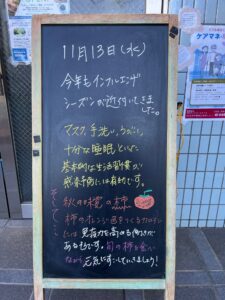 11月13日(水)
今年もインフルエンザ
シーズンが近付いてきま
した。
マスク、手洗い、うがい、
十分な睡眠といった
基本的な生活習慣が
感染予防には有効です。
そして…
秋の味覚の柿
柿のオレンジ色をつくるカロテン
には免疫力を高める働きが
あるそうです。旬の柿を食い
ながら元気にすごしていきましょう!
ケアマネ